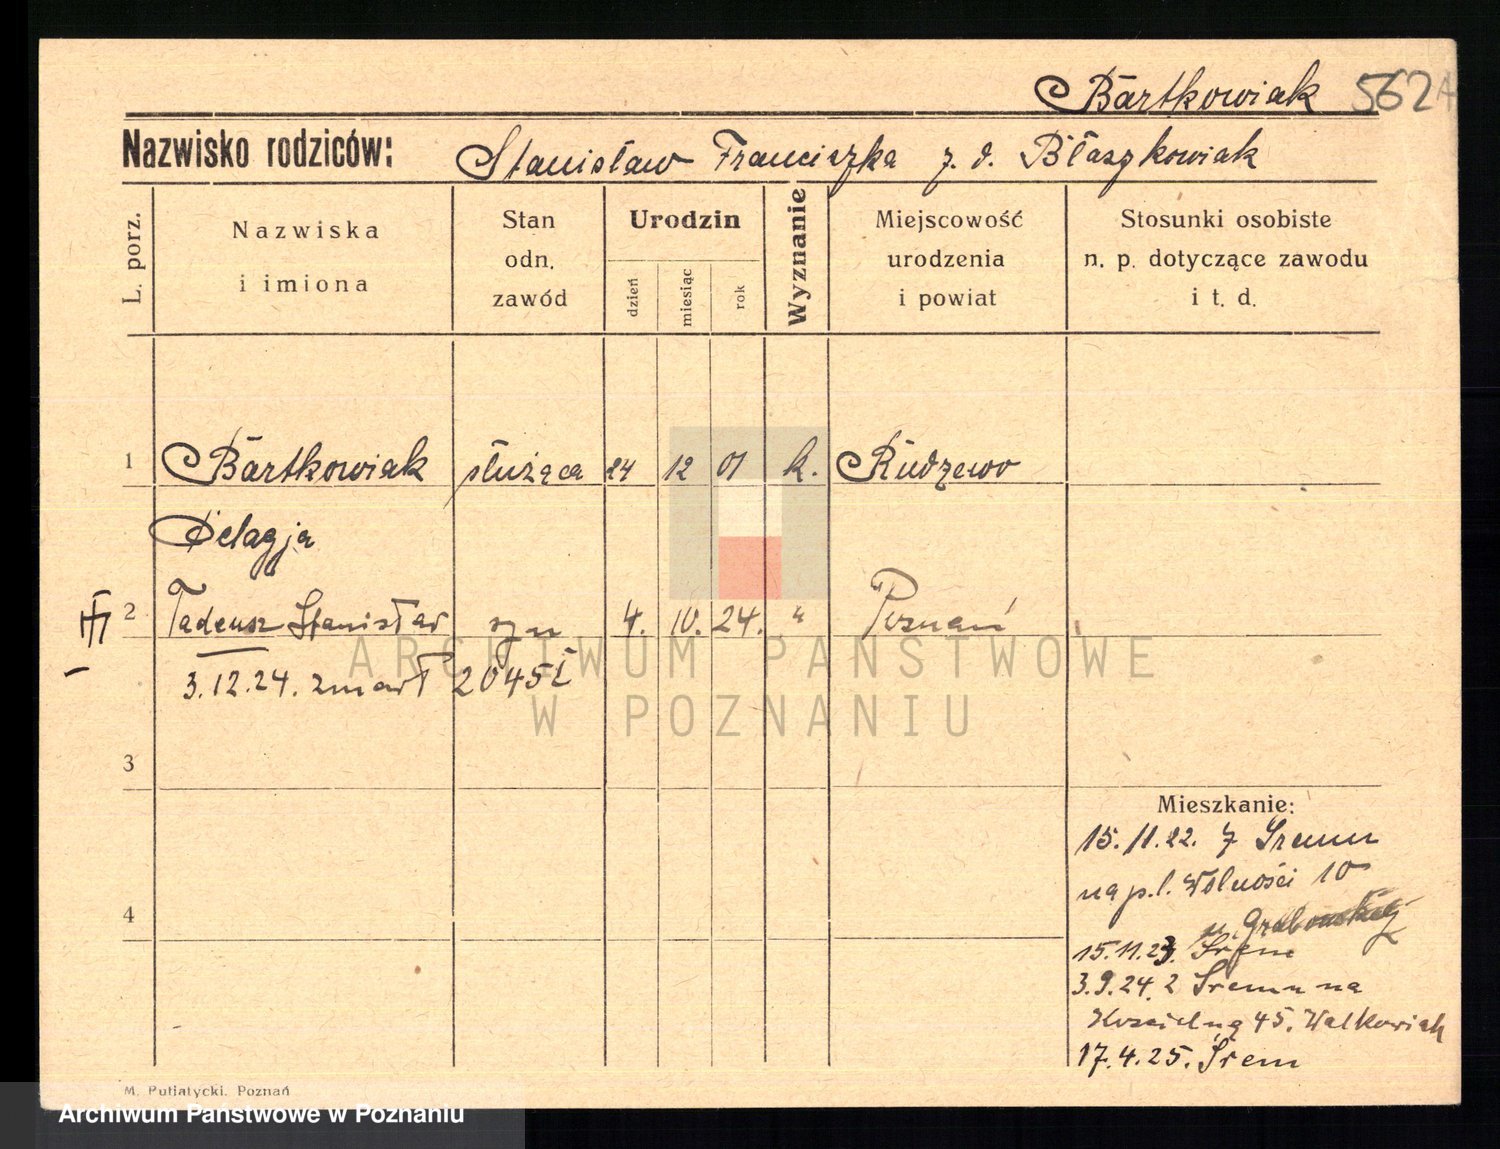 Bartkowiak 562
Nazwisko rodziców: Stanisław Franciszka z. d. Błaszkowiak
L. porz.
Nazwiska
i imiona
Stan
odn.
zawód
Urodzin
dzień
miesiąc
rok
Wyznanie
Miejscowość
urodzenia
i powiat
Stosunki osobiste
n. p. dotyczące zawodu
i t. d.
1 Bartkowiak służąca 24 12 01 k. Rudzewo
Pelagja
2 Tadeusz Stanisław syn 4. 10. 24. " Poznań
3.12.24. zmarł 2045
ARCHIWUM PAŃSTWOWE
W POZNANIU
3
Mieszkanie:
15.11.22. z Śremu
na pl. Wolności 10
u Grabowskiej
4
15.11.23. Śrem
3.9.24. z Śremu na
45. Walkowiak
17.4.25. Śrem
M. Putiatycki. Poznań
Archiwum Państwowe w Poznaniu